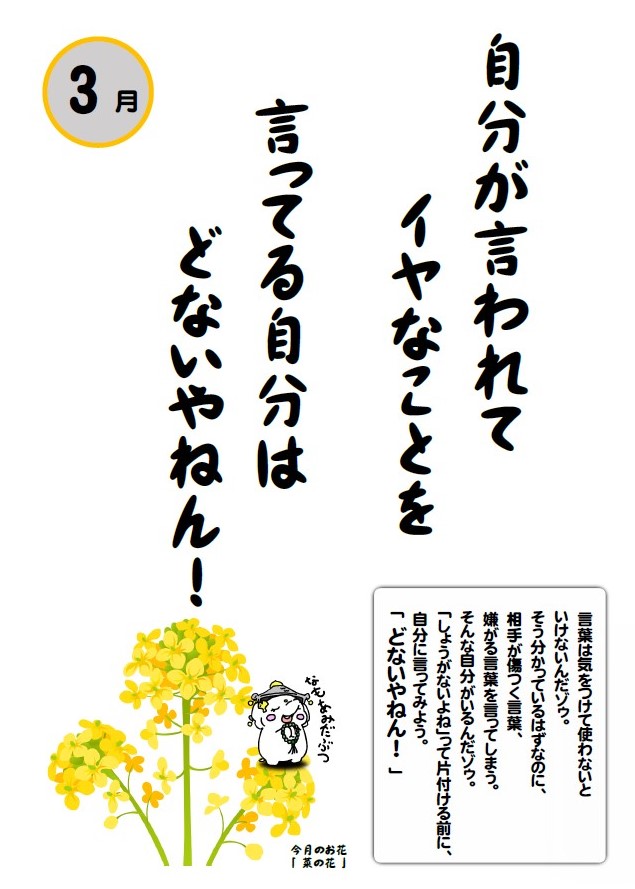 3月
自分が言われて
イヤなことを
言ってる自分は
どないやねん！
言葉は気をつけて使わないと
いけないんだゾウ。
そう分かっているはずなのに、
相手が傷つく言葉、
嫌がる言葉を言ってしまう。
そんな自分がいるんだゾウ。
「しょうがないよね」って片付ける前に、
自分に言ってみよう。
「どないやねん！」
なもあみだぶつ
今月のお花
「菜の花」